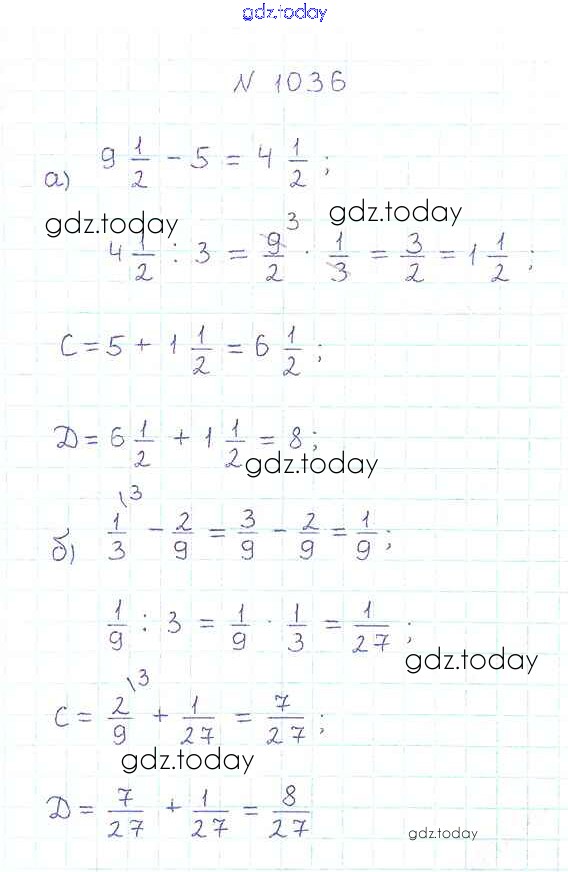 gdz.today
N 1036
а) 9 1/2 - 5 = 4 1/2 ;
gdz.today gdz.today
4 1/2 : 3 = 9/2 3 · 1/3 = 3/2 = 1 1/2 ;
С = 5 + 1 1/2 = 6 1/2 ;
Д = 6 1/2 + 1 1/2 = 8 ;
gdz.today
б) 1/3 \3 - 2/9 = 3/9 - 2/9 = 1/9 ;
1/9 : 3 = 1/9 · 1/3 = 1/27 ;
gdz.today
С = 2/9 \3 + 1/27 = 7/27 ;
gdz.today
Д = 7/27 + 1/27 = 8/27
gdz.today